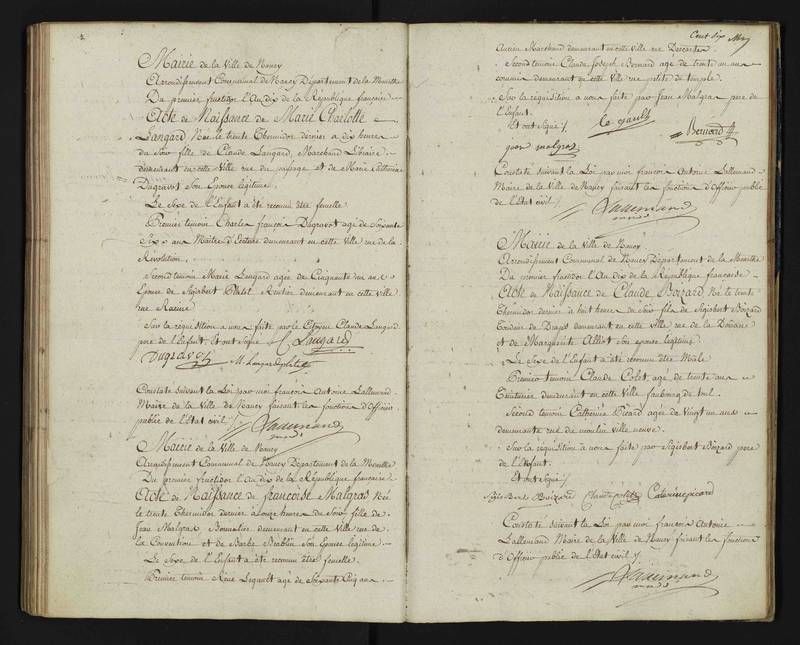 Mairie de la Ville de Nancy
Arrondissement Communal de Nancy Département de la Meurthe
Du premier fructidor l'An dix de la République française
Acte de Naissance de Marie Charlotte
Langard Née le trente Thermidor dernier a dix heures
du Soir fille de Claude Langard, Marchand Libraire
demeurant en cette Ville rue du passage et de Marie Catherine
Dugravot Son Epouse légitime.
Le Sexe de l'Enfant a été reconnu être femelle.
Premier temoin Charles françois Dugravot agé de Soixante
Six ans Maitre d'Ecriture demeurant en cette Ville rue de la
Révolution.
Second temoin Marie Langard agée de Cinquante un ans
Epouse de Sigisbert Rentier demeurant en cette Ville
rue Racine
Sur la requisition a nous faite par le Citoyen Claude Langard
pere de l'Enfant. Et ont Signé C. Langard
Dugravot M. Langard
Constaté suivant la Loi par moi françois Antoine Lallemand
Maire de la Ville de Nancy faisant les fonction d'Officier
public de l'Etat civil /. Lallemand
Mairie de la Ville de Nancy
Arrondissement Communal de Nancy Département de la Meurthe
Du premier fructidor l'An dix de la République francaise
Acte de Naissance de françoise Malgras Née
le trente Thermidor dernier à onze heures du Soir fille de
Jean Malgras Bonnetier demeurant en cette Ville rue de
la Convention et de Barbe Son Epouse légitime.
Le Sexe de l'Enfant a été reconnu être femelle.
Premier temoin René Legault agé de Soixante Cinq ans
Cent six
Ancien Marchand demeurant en cette Ville rue Descartes
Second temoin Claude Joseph Bernard agé de trente un ans
commis demeurant en cette Ville rue petite du temple.
Sur la réquisition a nous faite par Jean Malgras pere de
l'Enfant.
Et ont Signé /. le gault Bernard
jean malgras
Constaté suivant la Loi par moi françois Antoine Lallemand
Maire de la Ville de Nancy faisant les fonction d'Officier public
de l'Etat civil /. Lallemand
Mairie de la Ville de Nancy
Arrondissement Communal de Nancy Département de la Meurthe
Du premier fructidor l'An dix de la République francaise
Acte de Naissance de Claude Boizard, Né le trente
Thermidor dernier à huit heures du Soir fils de Sigisbert Boizard
Tondeur de Draps demeurant en cette Ville rue de la Douane
et de Marguerite Alliot Son épouse légitime
Le Sexe de l'Enfant a été reconnu être Mâle
Premier temoin Claude Colet, agé de trente ans
Teinturier demeurant en cette Ville faubourg de toul.
Second temoin Catherine Picard agée de Vingt un ans
demeurante rue du moulin Ville neuve.
Sur la réquisition à nous faite par Sigisbert Boizard pere
de l'Enfant.
Et ont Signé /.
Sigisbert Boizard Claude Colet Caterine picard
Constaté suivant la Loi par moi françois Antoine
Lallemand Maire de la Ville de Nancy faisant les fonction
d'Officier public de l'Etat civil /.
Lallemand